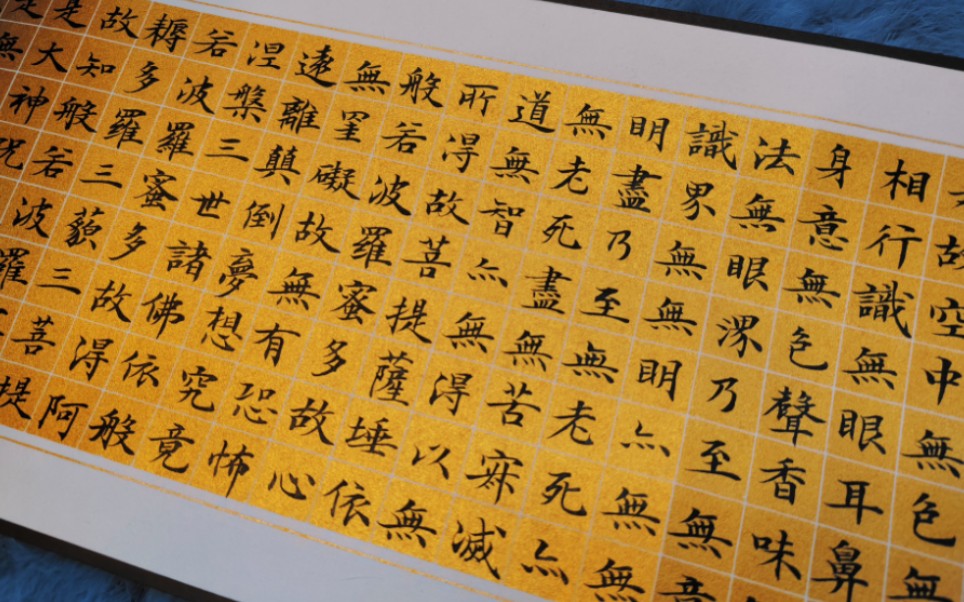 故空中無色無
相行識無眼耳鼻
身意無色聲香味
法無眼界乃至無意
識界無無明亦無無
明盡乃至無老死亦
無老死盡無苦寂滅
道無智亦無得以無
所得故菩提薩埵依
般若波羅蜜多故心
無罣礙故無有恐怖
遠離顛倒夢想究竟
涅槃三世諸佛依般
若波羅蜜多故得阿
耨多羅三藐三菩提
故知般若波羅
是大神咒
是無